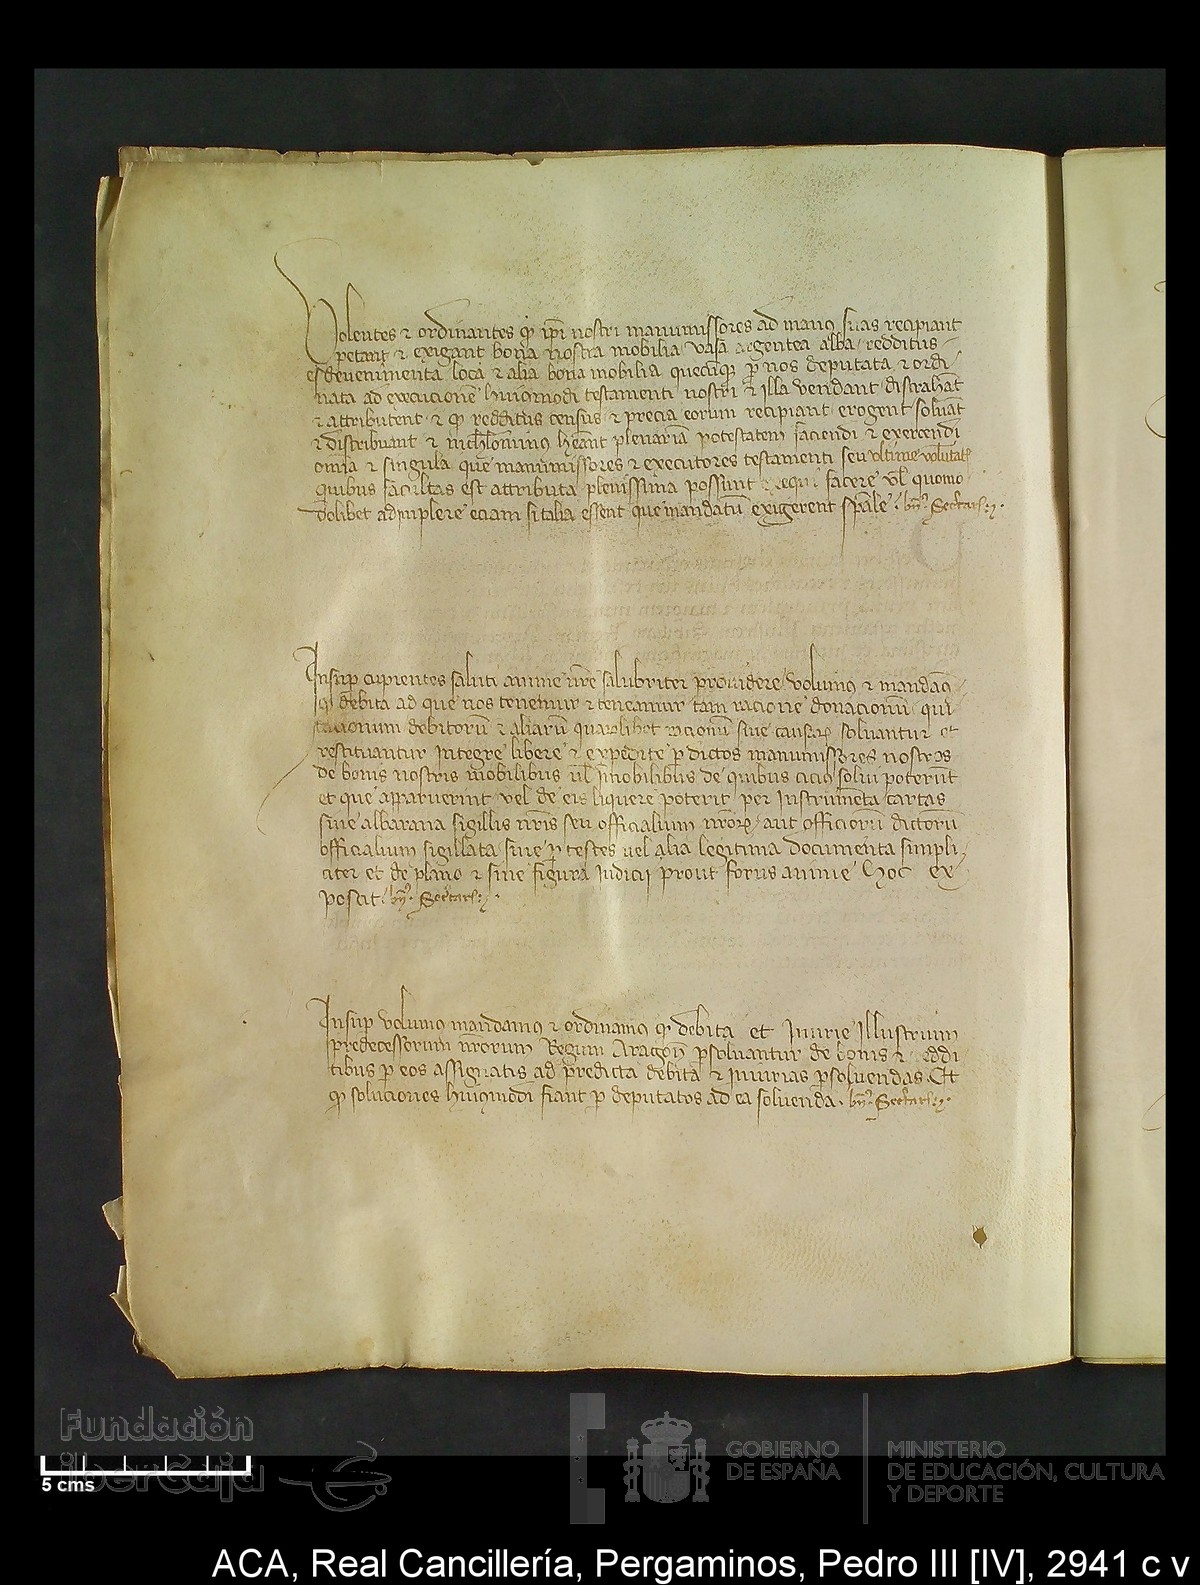 Volentes et ordinantes qd ipi nostri manumissores ad manus suas recipiant
petant et exigant bona nostra mobilia vasa argentea alba redditus
esdevenimenta loca et alia bona mobilia quecumq p nos deputata et ordi
nata ad execucione huiusmodi testamenti nostri et illa vendant distrahat
et attributent et qd redditus census et precia eorum recipiant erogent solvat
et distribuant et nichilominus heant plenaria potestatem faciendi et exercendi
omia et singula que manumissores et executores testamenti seu ultime volutat
quibus facultas est attributa plenissima possunt facere vl quomo
dolibet adimplere eciam si talia essent que mandatu exigerent spale
Insup cupientes saluti anime nre salubriter providere volumus et mandam
qd debita ad que nos tenemur et teneamur tam racione donacionu qui
tacionum debitoru et aliaru quarulibet accionu sive causar solvantur et
restituantur integre libere et expedite p dictos manumissores nostros
de bonis nostris mobilibus vl imobilibus de quibus cicius solvi poterunt
et que apparuerint vel de eis liquere poterit per instrumeta cartas
sive albarana sigillis nris seu officialium nror aut officioru dictoru
officialium sigillata sive p testes vel alia legitima documenta simpli
citer et de plano et sine figura judicij prout forus anime hoc ex
poscit
Insup volumus mandamus et ordinamus qd debita et injurie Illustrium
predecessorum nrorum Regum Aragon psolvantur de bonis et reddi
tibus p eos assignatis ad predicta debita et injurias psolvendas Et
qd soluciones huiusmodi fiant p deputatos ad ea solvenda
Fundación
iberCaja
5 cms
GOBIERNO
DE ESPAÑA
MINISTERIO
DE EDUCACIÓN, CULTURA
Y DEPORTE
ACA, Real Cancillería, Pergaminos, Pedro III [IV], 2941 c v